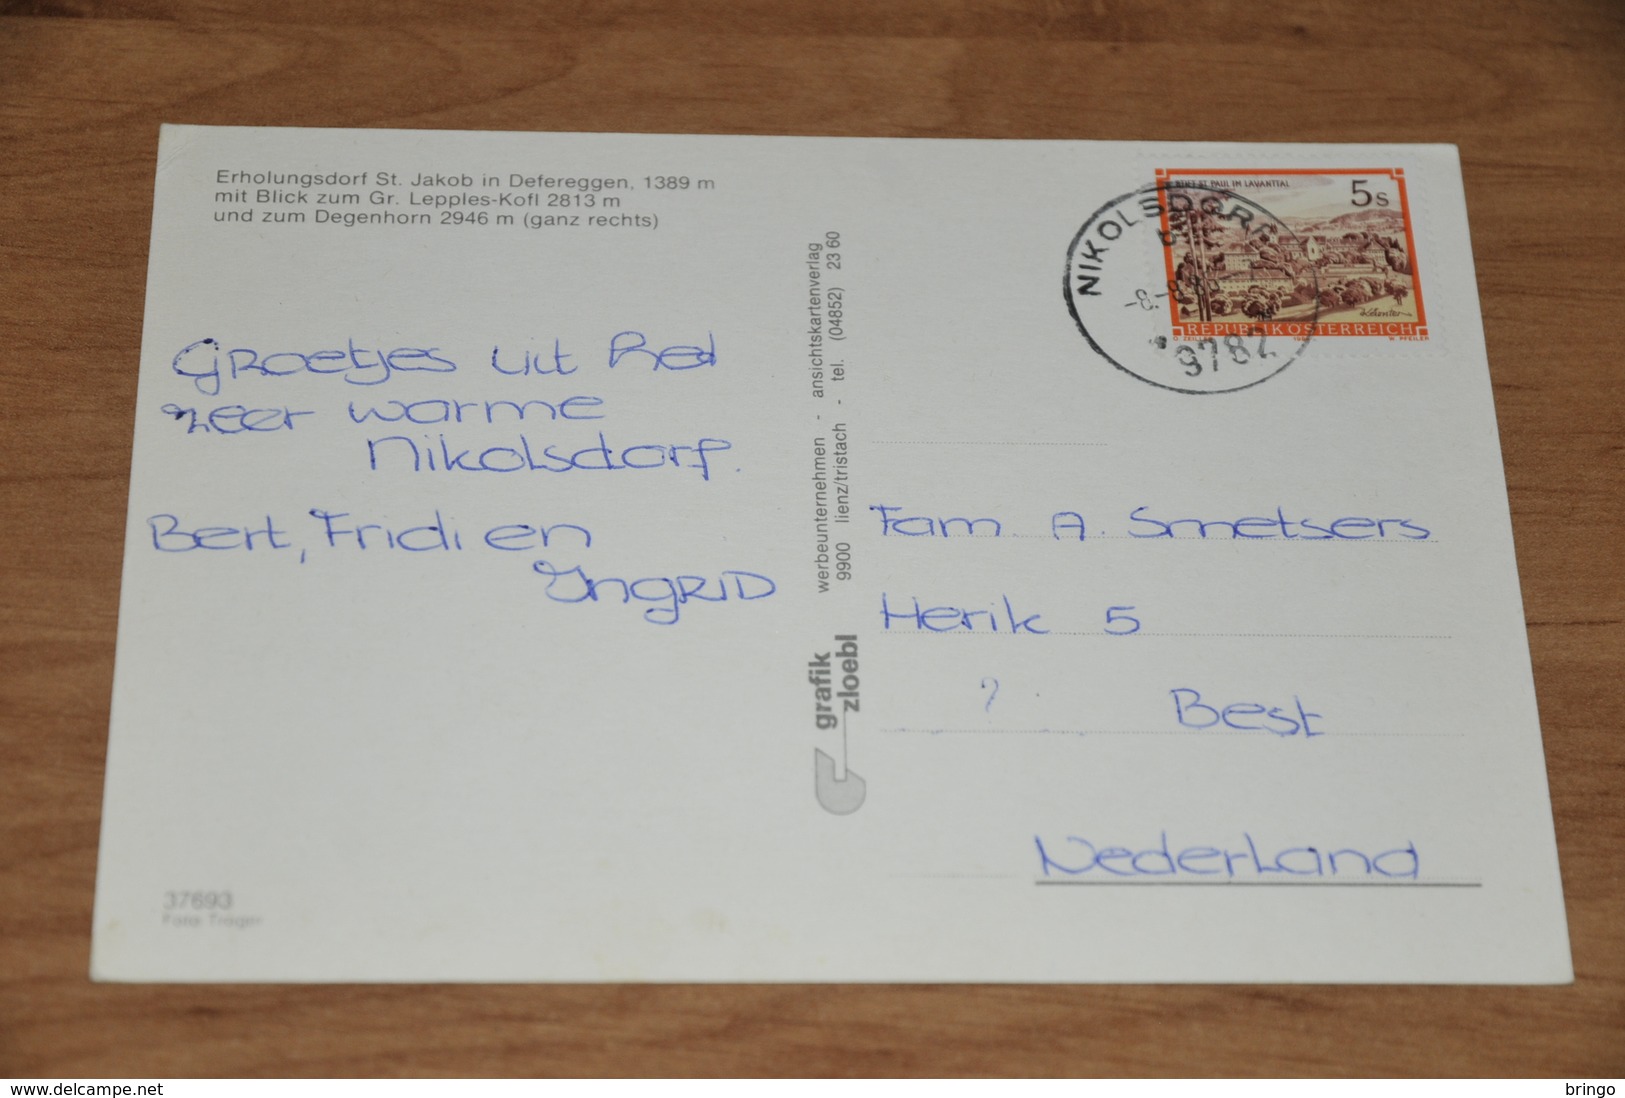 Erholungsdorf St. Jakob in Defereggen, 1389 m
mit Blick zum Gr. Lepples-Kofl 2813 m
und zum Degenhorn 2946 m (ganz rechts)
Groetjes uit het
zeer warme
Nikolsdorf.
Bert, Fridi en
Ingrid
37693
Foto Troger
werbeunternehmen - ansichtskartenverlag
9900 lienz/tristach - tel. (04852) 23 60
grafik
zloebl
STIFT ST. PAUL IM LAVANTTAL
5 S
REPUBLIK ÖSTERREICH
W. PFEILER
NIKOLSDORF
9782
Fam. A. Smetsers
Herik 5
?
Best
Nederland
delcampe.net
bringo